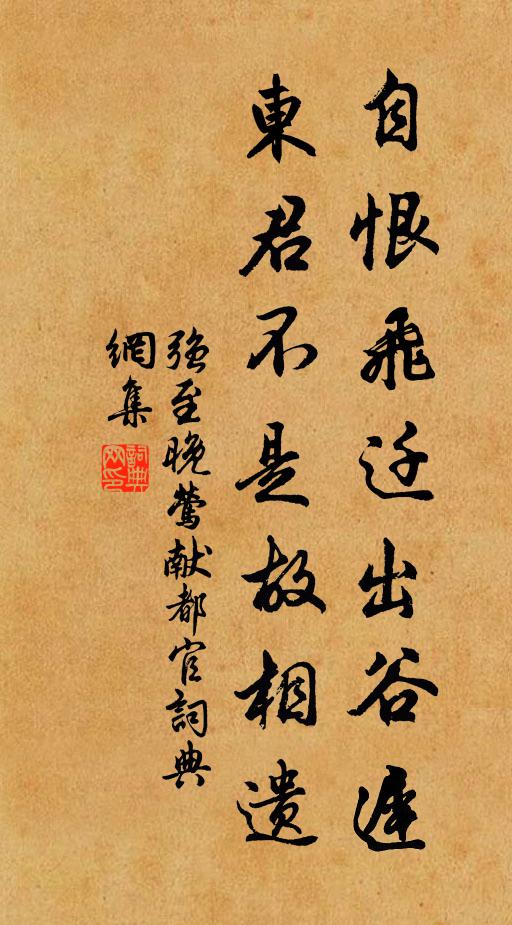 自恨飛迁出谷遲
東君不是故相遗
强至晚鶯献都官詞典
網集
詞典
网印